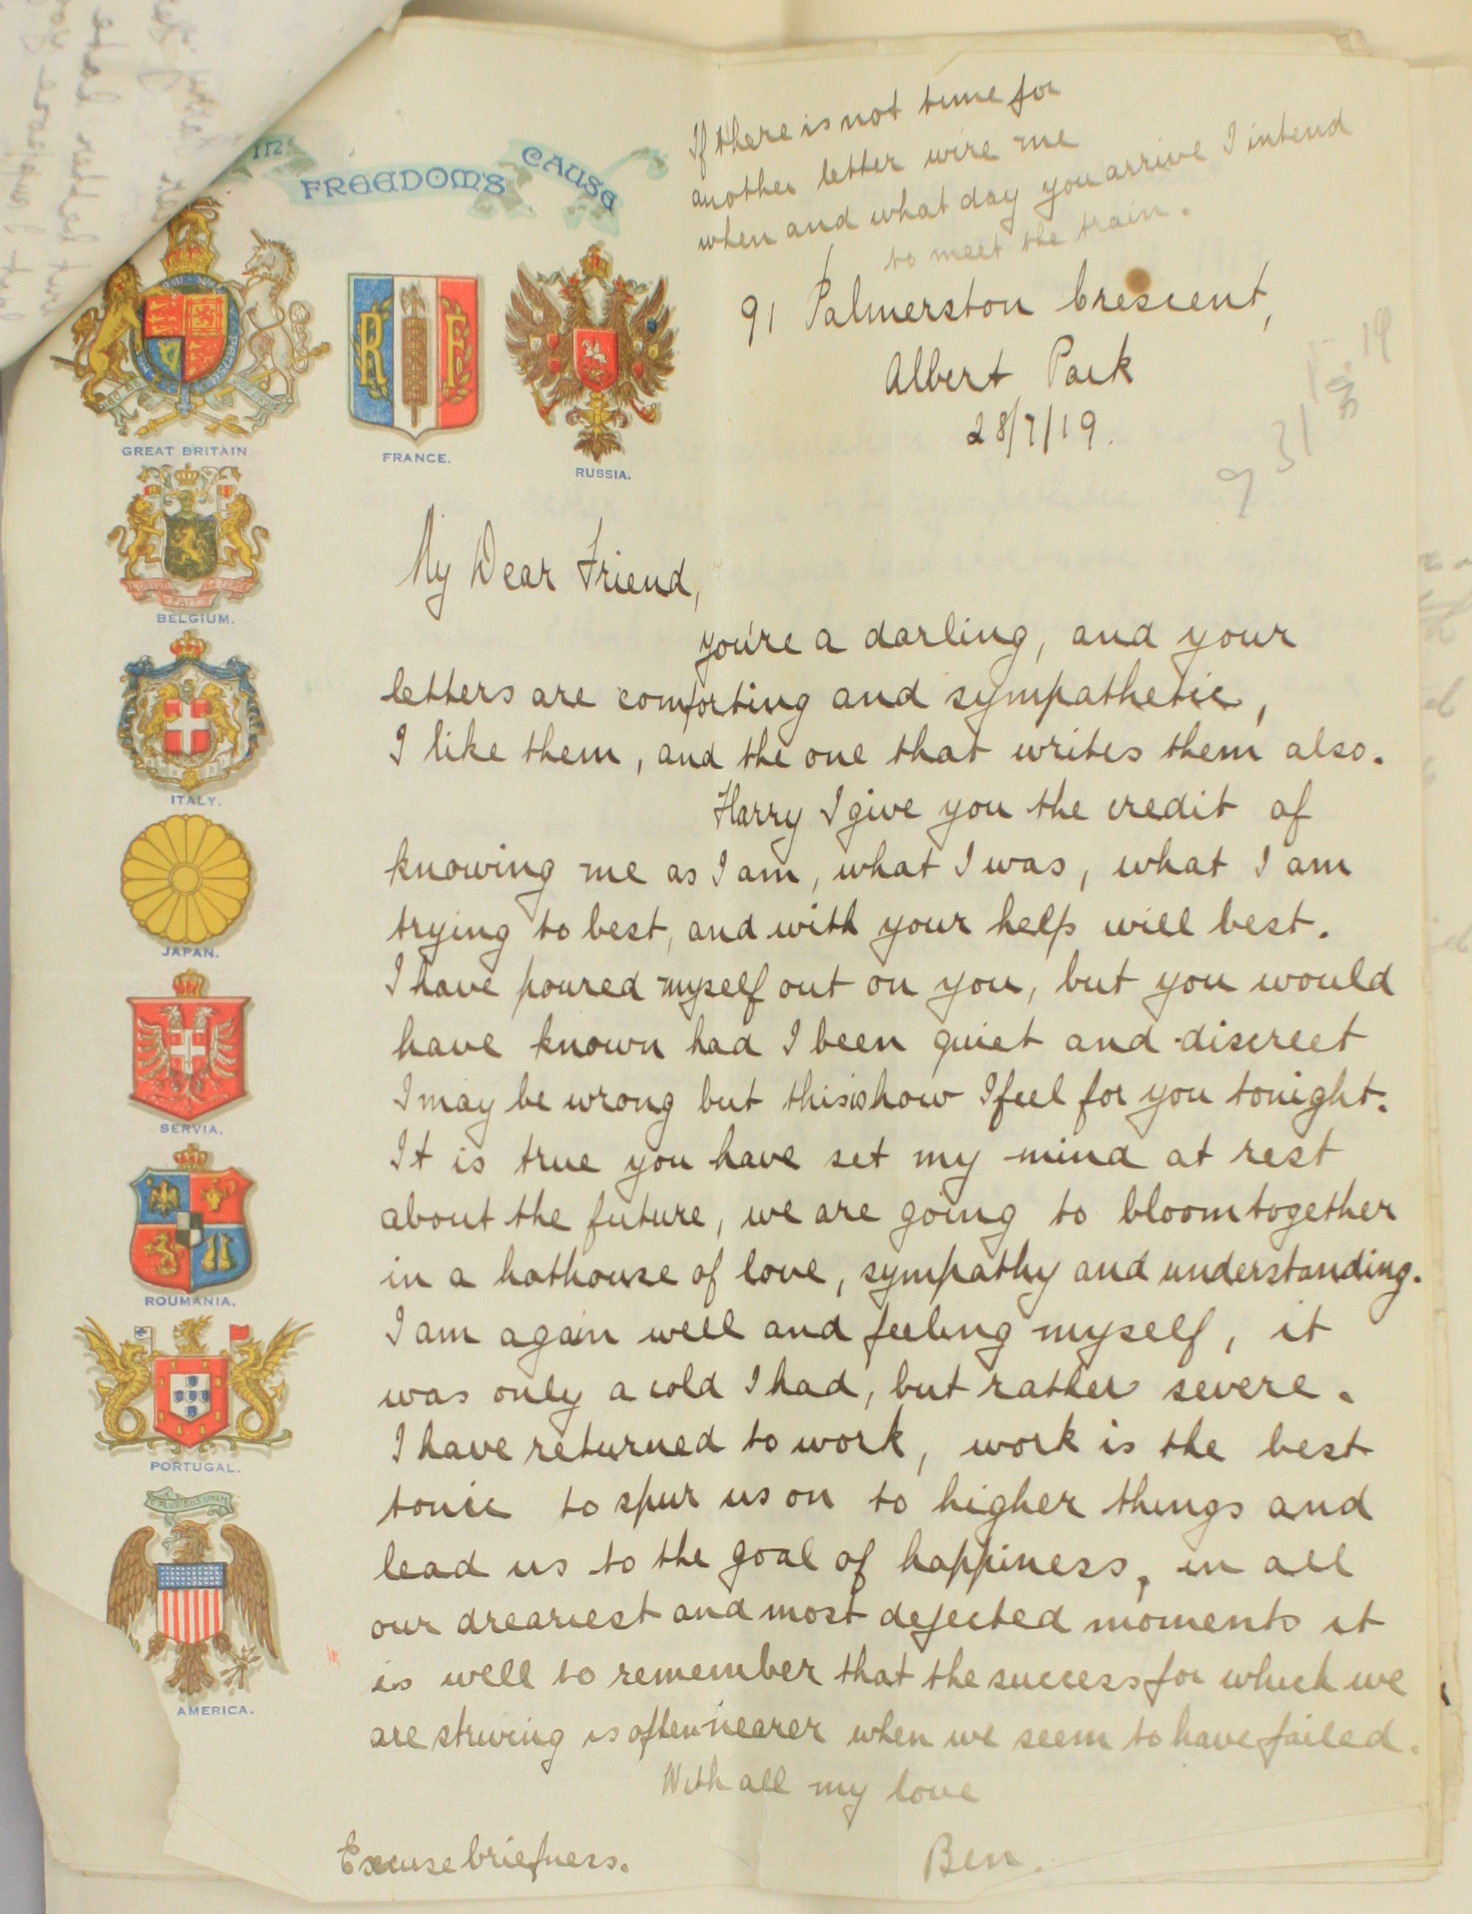 in FREEDOM'S CAUSE
If there is not time for
another letter wire me
when and what day you arrive I intend
to meet the train.
91 Palmerston Crescent,
Albert Park
28/7/19.
GREAT BRITAIN
FRANCE.
RUSSIA.
BELGIUM.
ITALY.
JAPAN.
SERVIA.
ROUMANIA.
PORTUGAL.
AMERICA.
R F
My Dear Friend,
you're a darling, and your
letters are comforting and sympathetic,
I like them, and the one that writes them also.
Harry I give you the credit of
knowing me as I am, what I was, what I am
trying to best, and with your help will best.
I have poured myself out on you, but you would
have known had I been quiet and discreet
I may be wrong but this is how I feel for you tonight.
It is true you have set my mind at rest
about the future, we are going to bloom together
in a hothouse of love, sympathy and understanding.
I am again well and feeling myself, it
was only a cold I had, but rather severe.
I have returned to work, work is the best
tonic to spur us on to higher things and
lead us to the goal of happiness, in all
our dreariest and most dejected moments it
is well to remember that the success for which we
are striving is often nearer when we seem to have failed.
With all my love
Ben.
Excuse briefness.